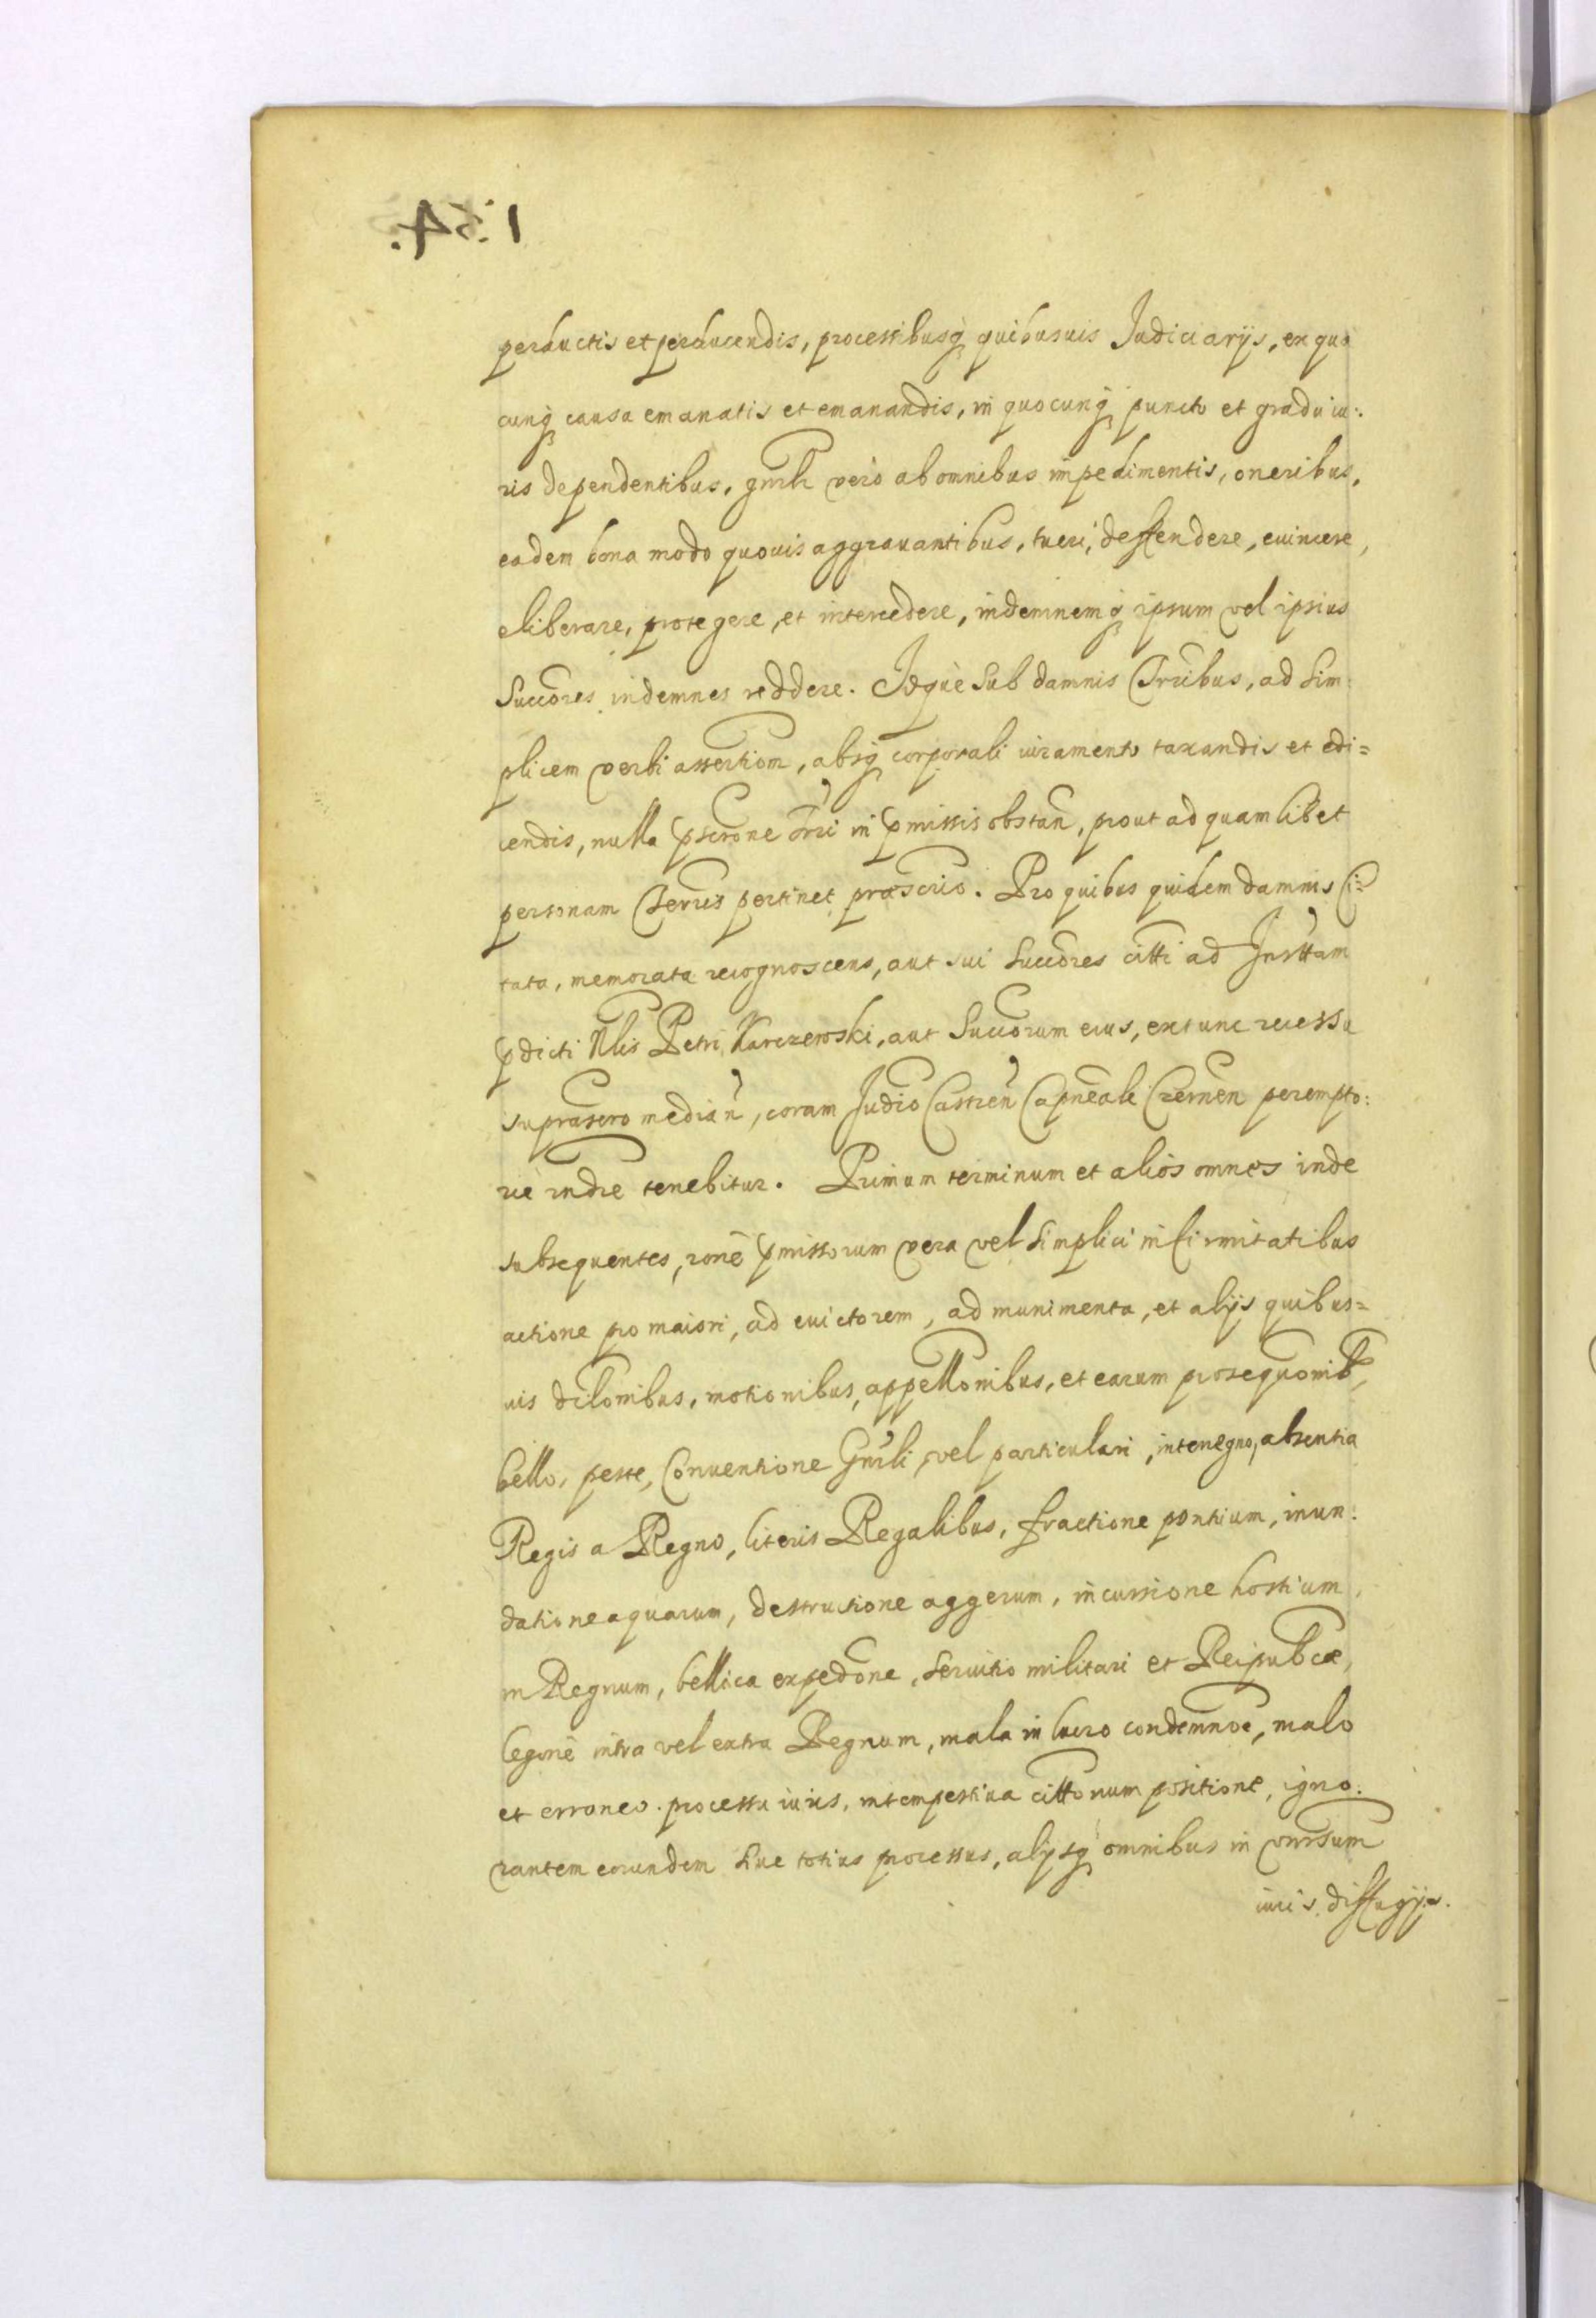 perductis et perducendis, processibusq quibusuis Judiciarijs, ex qua
cunq causa emanatis et emanandis, in quocunq puncto et gradu iu:
ris dependentibus, gnrlr vero ab omnibus impedimentis, oneribus,
eadem bona modo quouis aggrauantibus, tueri, deffendere, euincere,
eliberare, protegere, et intercedere, indemnemq ipsum vel ipsius
Succores indemnes reddere. Idque sub damnis Trribus, ad sim
plicem verbi assertiom, absq corporali iuramento taxandis et edi=
cendis, nulla pscrone Trri in pmissis obstan, prout ad quamlibet
personam pertinet prascrio. Pro quibus quidem damnis Ci
tata, memorata recognoscens, aut sui Succores citti ad Insttam
pdicti Nlis Petri Karczewski, aut Succorum eius, ex tunc recessu
suprascro median, coram Judio Castren Capneali Czernen perempto:
rie rndre tenebitur. Primum terminum et alios omnes inde
subsequentes, rone pmissorum vera vel simplici infirmitatibus
actione pro maiori, ad euictorem, ad munimenta, et alijs quibus=
uis dilonibus, motionibus, appellonibus, et earum prosequonib,
bello, peste, Conuentione Gnrli, vel particulari, interregno, absentia
Regis a Regno, literis Regalibus, fractione pontium, inun:
datione aquarum, destructione aggerum, incursione hostium,
in Regnum, bellica expedone, seruitio militari et Reipubcae,
legone intra vel extra Regnum, mala in lucro condemnoe, malo
et erroneo processu iuris, intempestiua cittonum positione, igno:
rantem eorundem siue totius processus, alijsq omnibus in vnrsum
iuris diffugijs.